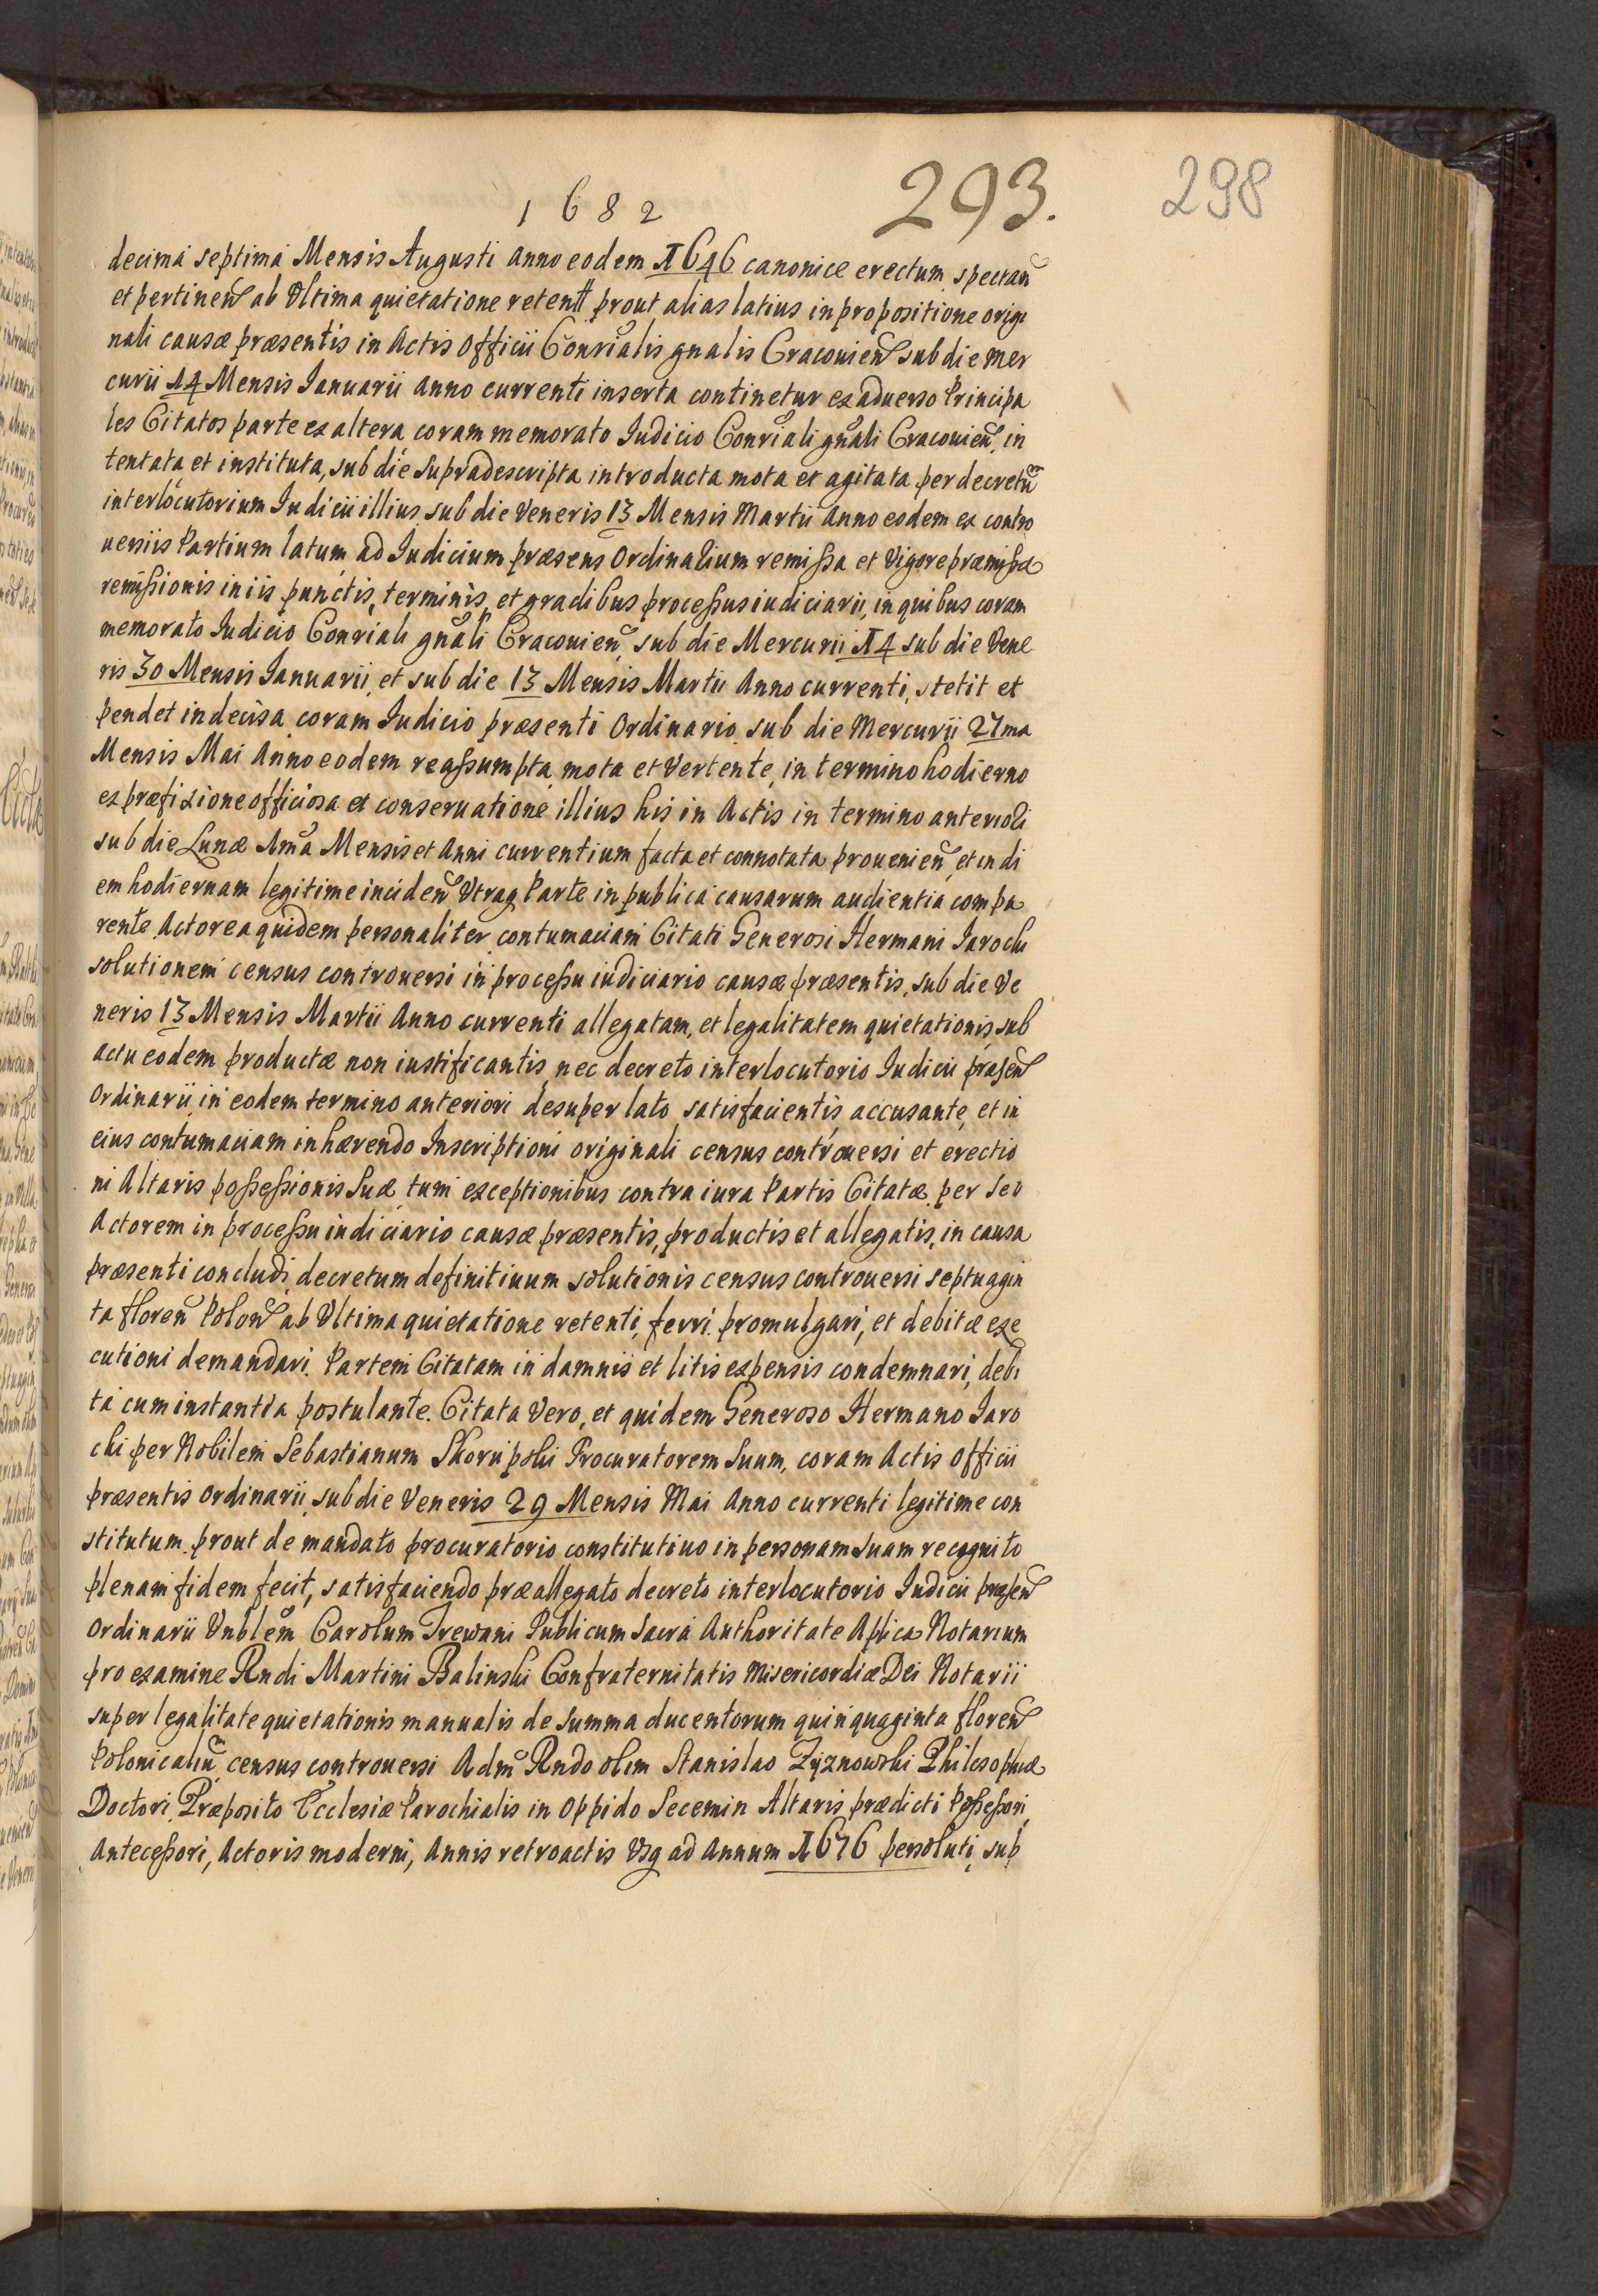 1682
293.
298
decima septima Mensis Augusti Anno eodem 1646 canonice erectum spectan
et pertinen ab Ultima quietatione retentt prout alias latius in propositione origi
nali causæ præsentis in Actis Officii Conrialis gnalis Cracouien sub die Mer
curii 14 Mensis Ianuarii Anno currenti inserta continetur ex aduerso Principa
les Citatos parte ex altera coram memorato Iudicio Conriali gnali Cracouien, in
tentata et instituta, sub die Supradescripta introducta mota et agitata per decretu
interlocutorium Iudicii illius sub die Veneris 13 Mensis Martii Anno eodem ex contro
uersiis Partium latum ad Iudicium præsens Ordinarium remissa et Vigore præmissæ
remissionis in iis punctis, terminis et gradibus processus iudiciarii, in quibus coram
memorato Iudicio Conriali gnali Cracouien, sub die Mercurii 14 sub die Vene
ris 30 Mensis Ianuarii, et sub die 13 Mensis Martii Anno currenti, stetit et
pendet indecisa coram Iudicio præsenti Ordinario sub die Mercurii 27ma
Mensis Mai Anno eodem reassumpta mota et Vertente in termino hodierno
ex præfixione officiosa et conseruatione illius his in Actis in termino anteriori
sub die Lunæ 1ma Mensis et Anni currentium facta et connotata prouenien, et in di
em hodiernam legitime inciden Utraq Parte in publica causarum audientia compa
rente Actorea quidem personaliter contumaciam Citati Generosi Hermani Iarochi
solutionem census controuersi in processu iudiciario causæ præsentis, sub die Ve
neris 13 Mensis Martii Anno currenti allegatam, et legalitatem quietationis, sub
actu eodem productæ non iustificantis, nec decreto interlocutorio Iudicii præsen
Ordinarii in eodem termino anteriori desuper lato, satisfacientis, accusante, et in
eius contumaciam inhærendo Inscriptioni originali census controuersi et erectio
ni Altaris possessionis Suæ tum exceptionibus contra iura Partis Citatæ per Se
Actorem in processu iudiciario causæ præsentis, productis et allegatis, in causa
præsenti concludi, decretum definitiuum solutionis census controuersi septuagin
ta floren Polon ab Ultima quietatione retenti, ferri promulgari, et debitæ exe
cutioni demandari. Partem Citatam in damnis et litis expensis condemnari, debi
ta cum instantia postulante. Citata Vero, et quidem Generoso Hermano Iaro
chi per Nobilem Sebastianum Skorupski Procuratorem Suum, coram Actis Officii
præsentis Ordinarii sub die Veneris 29 Mensis Mai Anno currenti legitime con
stitutum prout de mandato procuratorio constitutiuo in personam Suam recognito
plenam fidem fecit, satisfaciendo præallegato decreto interlocutorio Iudicii præsen
Ordinarii Vnblem Carolum Trewani Publicum Sacra Authoritate Aplica Notarium
pro examine Rndi Martini Balinski Confraternitatis Misericordiæ Dei Notarii
super legalitate quietationis manualis de Summa ducentorum quinquaginta floren
Polonicaliu census controuersi Adm Rndo olim Stanislao Zyznowski Philosophiæ
Doctori Præposito Ecclesiæ Parochialis in Oppido Secemin Altaris prædicti Possessori
Antecessori, Actoris moderni, Annis retroactis Vsq ad Annum 1676 persoluti, sub